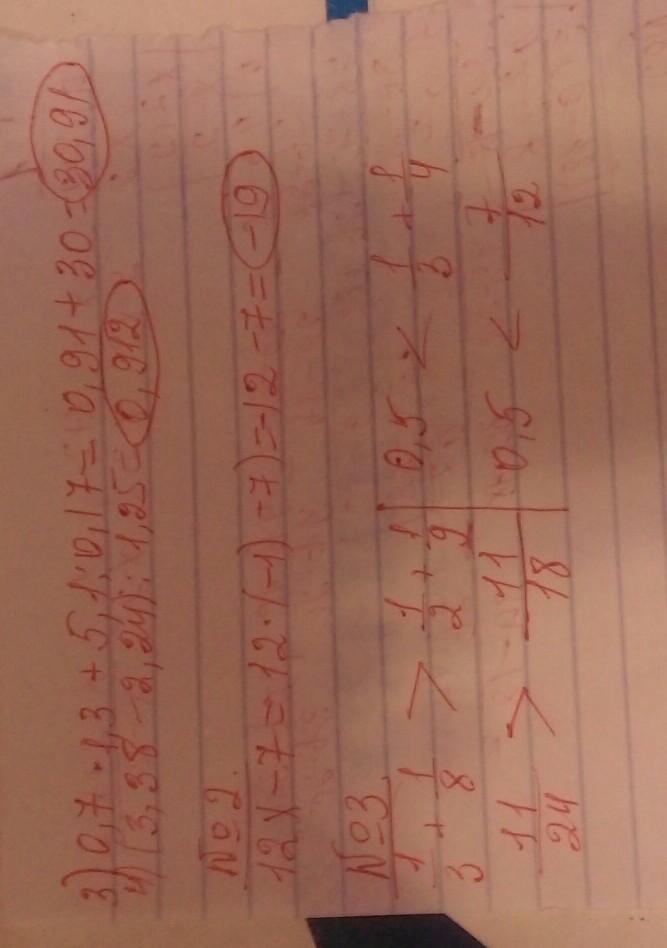 3) 0,7 · 1,3 + 5,1 : 0,17 = 0,91 + 30 = 30,91
4) (3,38 - 2,24) : 1,25 = 0,912
№2.
12x - 7 = 12 · (-1) - 7) = -12 - 7 = -19
№3
1/3 + 1/8 > 1/2 + 1/9 | 0,5 < 1/3 + 1/4
11/24 > 11/18 | 0,5 < 7/12